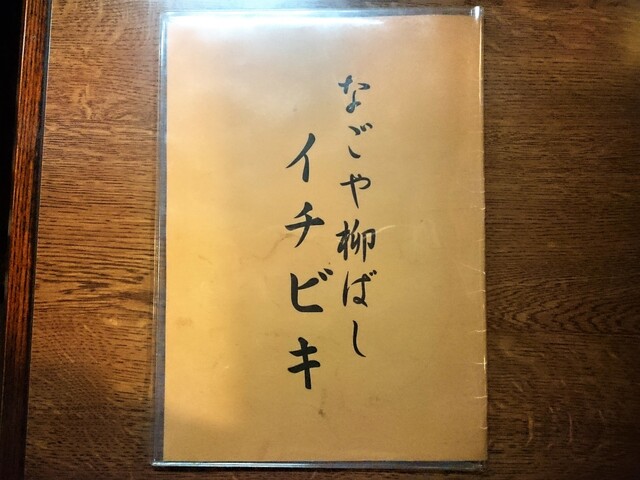 なごや柳ばし
イチビキ